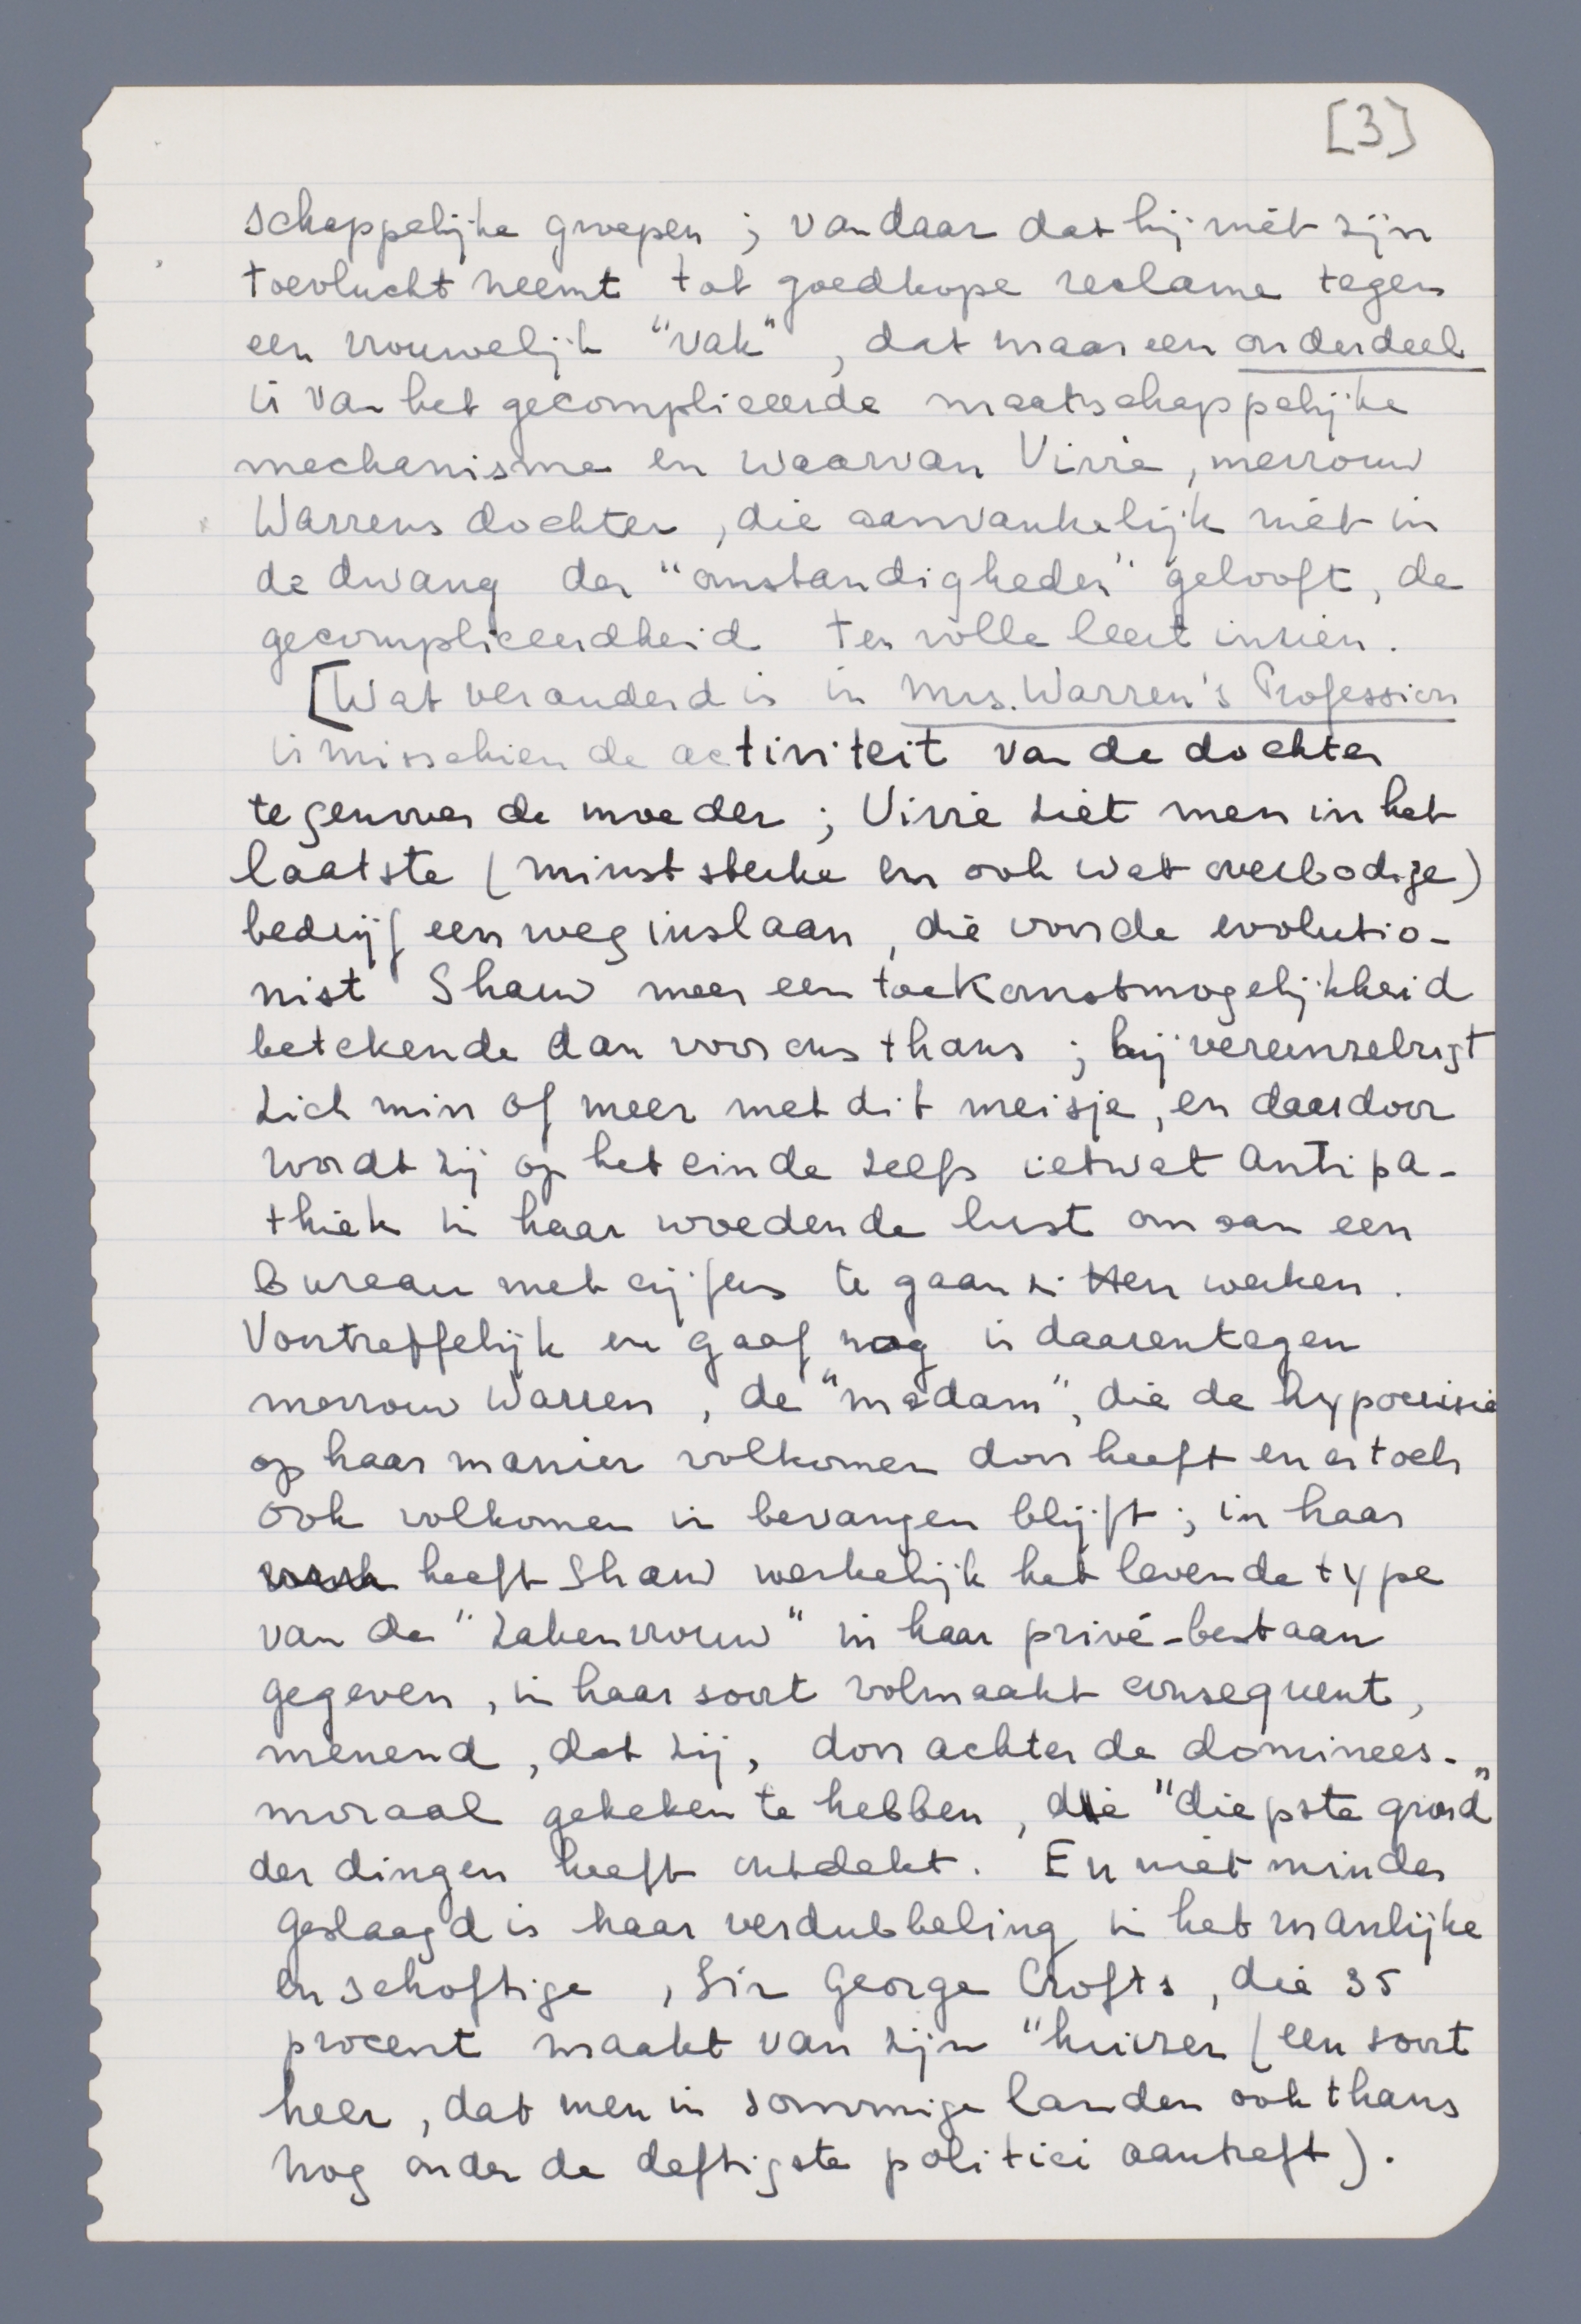 [3]
schappelijke groepen ; vandaar dat hij niet zijn
toevlucht neemt tot goedkope reclame tegen
een vrouwelijk "vak" , dat maar een onderdeel
is van het gecompliceerde maatschappelijke
mechanisme en waarvan Vivie, mevrouw
Warrens dochter , die aanvankelijk niet in
de dwang der "omstandigheden" gelooft, de
gecompliceerdheid ten volle leert inzien.
[Wat veranderd is in Mrs. Warren's Profession
is misschien de activiteit van de dochter
tegenover de moeder ; Vivie ziet men in het
laatste (minst sterke en ook wat overbodige)
bedrijf een weg inslaan , die voor de evolutio-
nist Shaw meer een toekomstmogelijkheid
betekende dan voor ons thans ; hij vereenzelvigt
zich min of meer met dit meisje, en daardoor
wordt zij op het einde zelfs ietwat antipa-
thiek in haar woedende lust om aan een
bureau met cijfers te gaan zitten werken .
Voortreffelijk en gaaf nog is daarentegen
mevrouw Warren , de "madam", die de hypocrisie
op haar manier volkomen door heeft en er toch
ook volkomen in bevangen blijft ; in haar
heeft Shaw werkelijk het levende type
van de "zakenvrouw" in haar privé-bestaan
gegeven , in haar soort volmaakt consequent,
menend , dat zij, door achter de dominees-
moraal gekeken te hebben , de "diepste grond"
der dingen heeft ontdekt. En niet minder
geslaagd is haar verdubbeling in het manlijke
en schoftige , Sir George Crofts , die 35
procent maakt van zijn "huizen (een soort
heer , dat men in sommige landen ook thans
nog onder de deftigste politici aantreft).